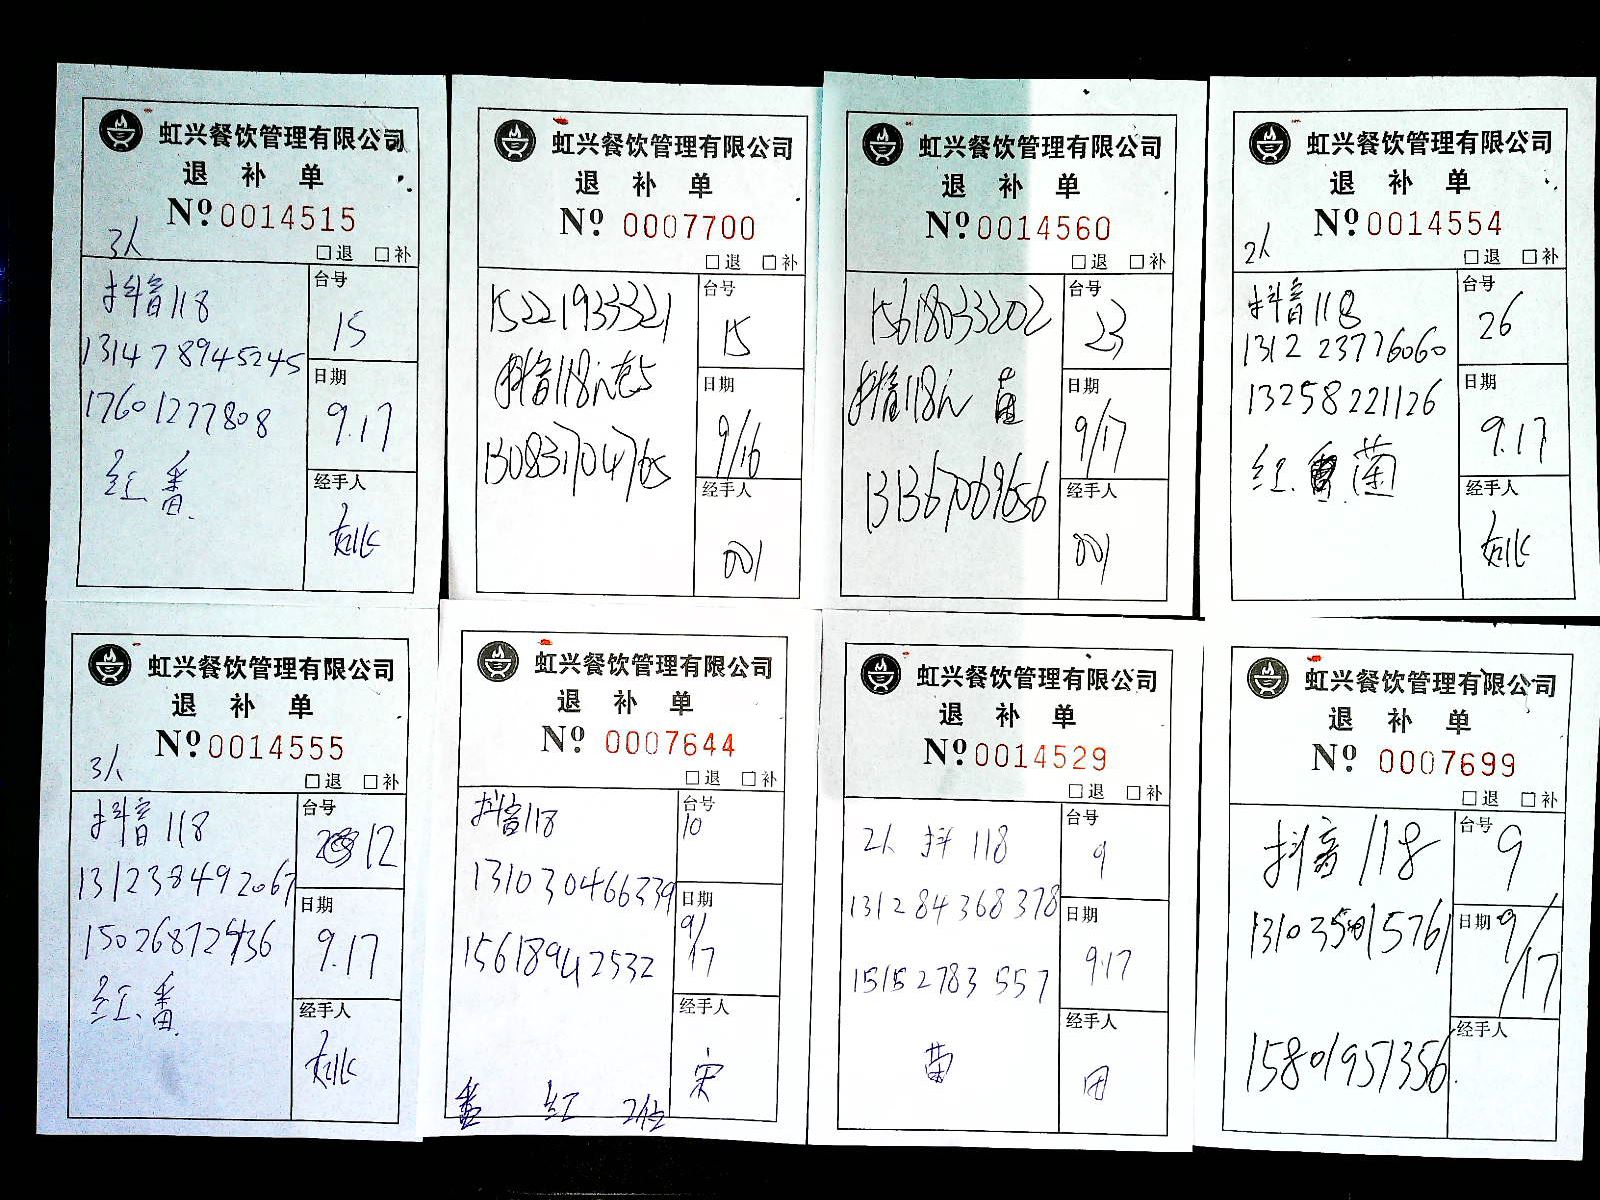 虹兴餐饮管理有限公司
退 补 单
Nº 0014515
3人
□退 □补
抖音118
131478945245
17601277808
红 番
台号
15
日期
9.17
经手人
虹兴餐饮管理有限公司
退 补 单
Nº 0007700
□退 □补
15221933321
抖音118
13083704765
台号
15
日期
9/16
经手人
001
虹兴餐饮管理有限公司
退 补 单
Nº 0014560
□退 □补
15618033202
抖音118
131367069656
台号
23
日期
9/17
经手人
001
虹兴餐饮管理有限公司
退 补 单
Nº 0014554
2人
□退 □补
抖音118
1312 23776060
13258221126
红 菌
台号
26
日期
9.17
经手人
虹兴餐饮管理有限公司
退 补 单
Nº 0014555
3人
□退 □补
抖音118
131238492067
红 番
台号
12
日期
9.17
经手人
虹兴餐饮管理有限公司
退 补 单
Nº 0007644
□退 □补
抖音118
131030466339
15618942532
番 红 2位
台号
10
日期
9/17
经手人
宋
虹兴餐饮管理有限公司
退 补 单
Nº 0014529
□退 □补
2人 抖 118
131284368378
15152783557
菌
台号
9
日期
9.17
经手人
田
虹兴餐饮管理有限公司
退 补 单
Nº 0007699
□退 □补
抖音118
15801951356
台号
9
日期
9/17
经手人